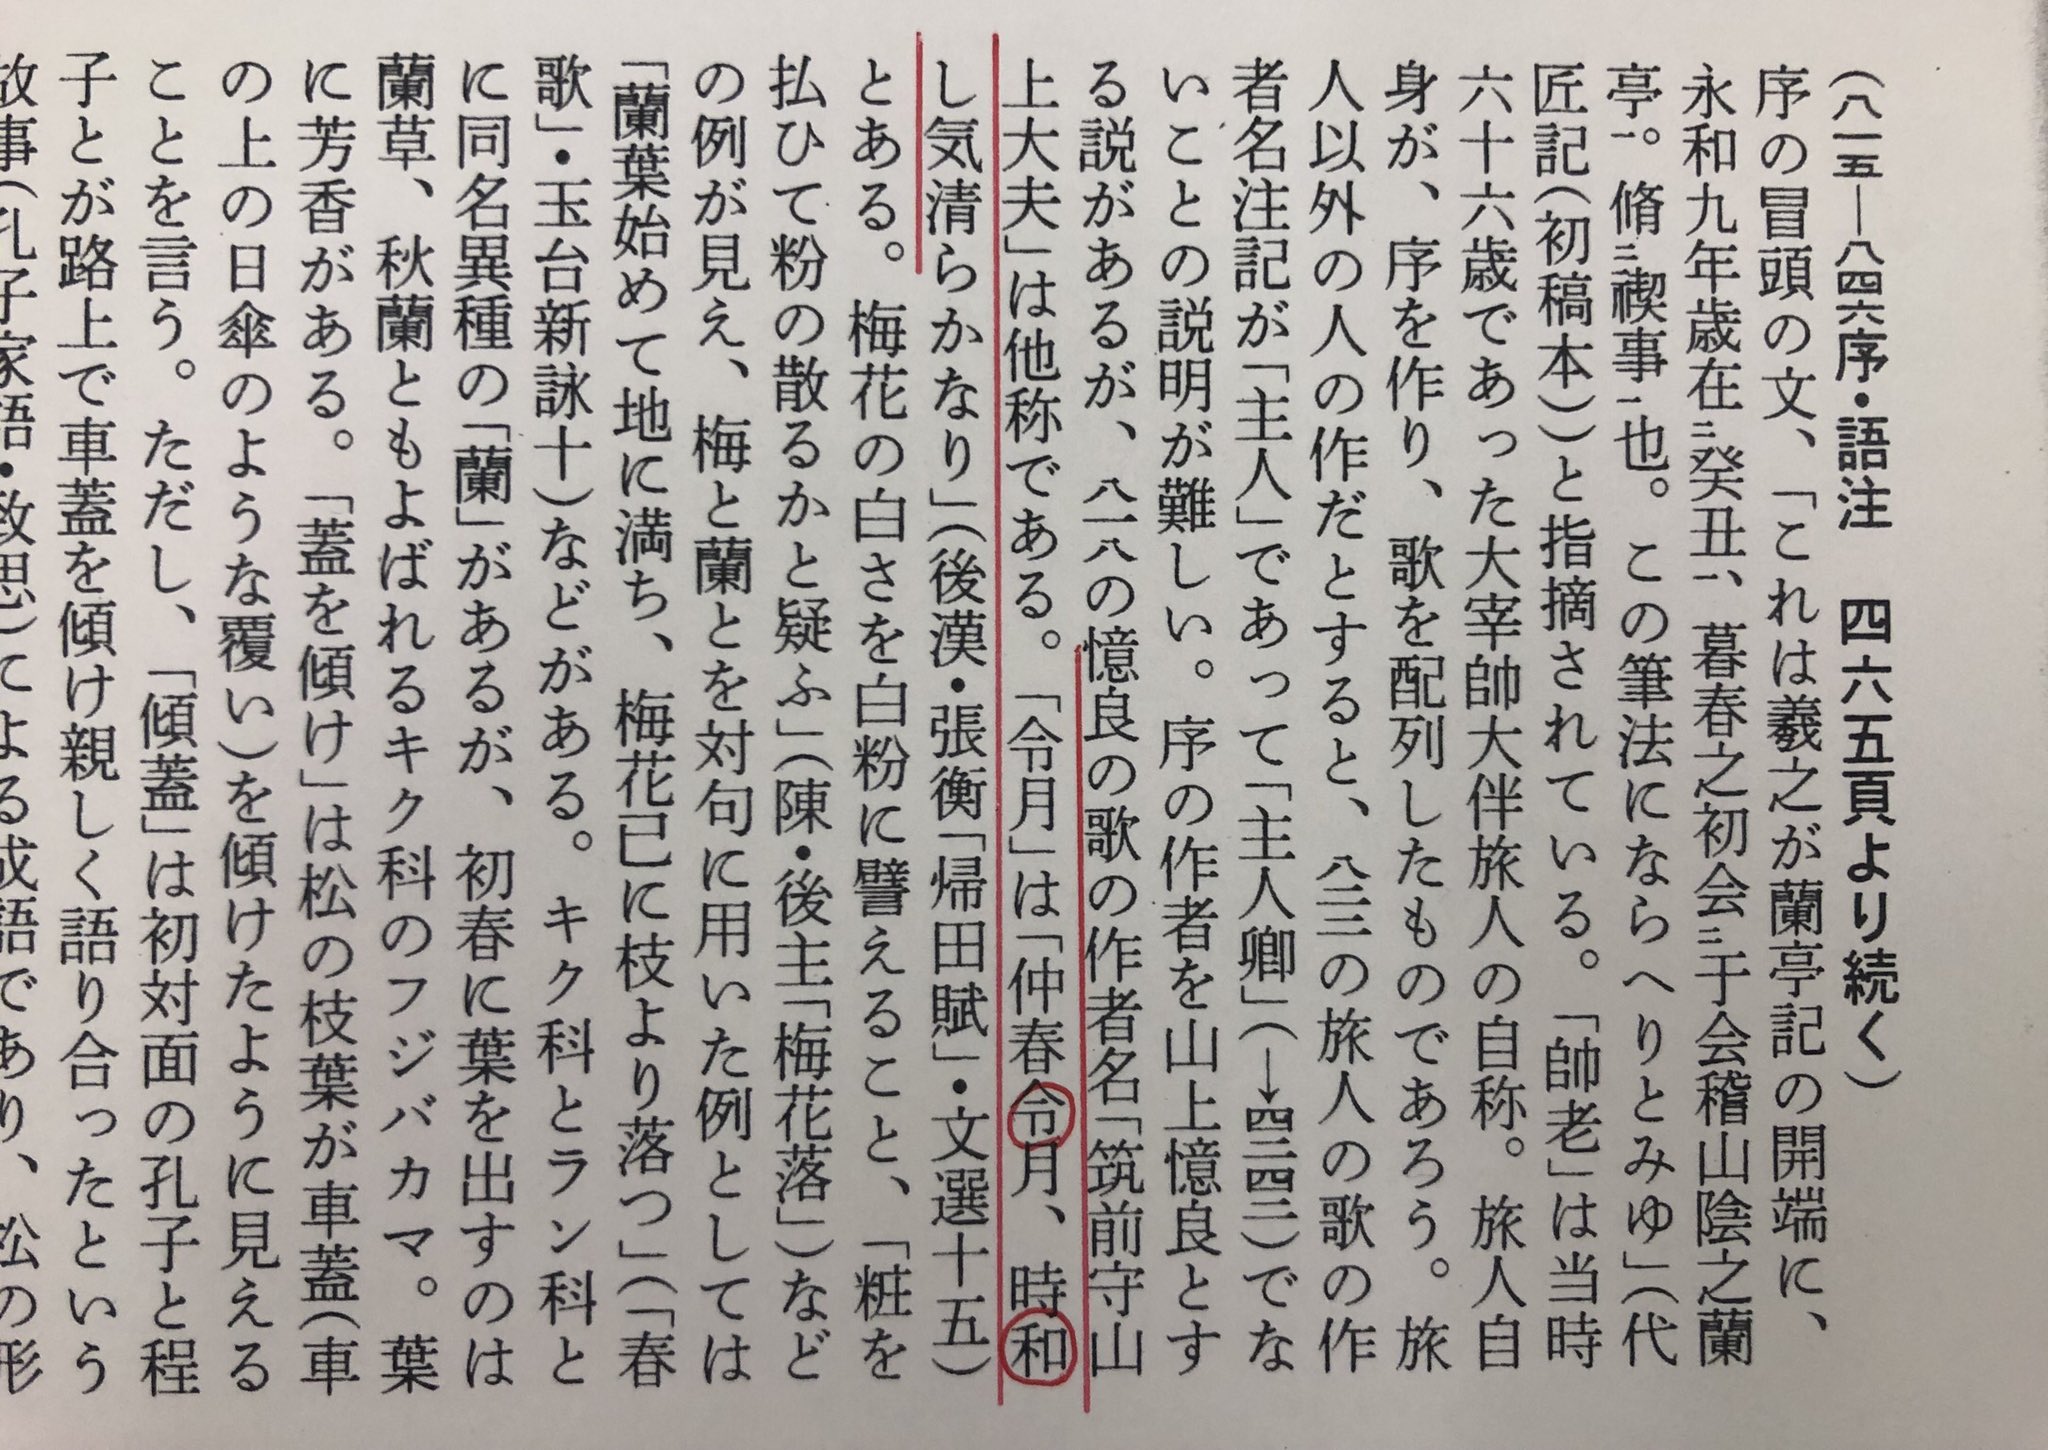 (八一五―八四六序・語注　四六五頁より続く)
序の冒頭の文、「これは羲之が蘭亭記の開端に、
永和九年歳在ニ癸丑一、暮春之初会ニ于会稽山陰之蘭
亭一。脩ニ禊事一也。この筆法にならへりとみゆ」(代
匠記(初稿本))と指摘されている。「帥老」は当時
六十六歳であった大宰帥大伴旅人の自称。旅人自
身が、序を作り、歌を配列したものであろう。旅
人以外の人の作だとすると、八二二の旅人の歌の作
者名注記が「主人」であって「主人卿」(→四二四二)でな
いことの説明が難しい。序の作者を山上憶良とす
る説があるが、八一八の憶良の歌の作者名「筑前守山
上大夫」は他称である。「令月」は「仲春令月、時和
し気清らかなり」(後漢・張衡「帰田賦」・文選十五)
とある。梅花の白さを白粉に譬えること、「粧を
払ひて粉の散るかと疑ふ」(陳・後主「梅花落」)など
の例が見え、梅と蘭とを対句に用いた例としては
「蘭葉始めて地に満ち、梅花已に枝より落つ」(「春
歌」・玉台新詠十)などがある。キク科とラン科と
に同名異種の「蘭」があるが、初春に葉を出すのは
蘭草、秋蘭ともよばれるキク科のフジバカマ。葉
に芳香がある。「蓋を傾け」は松の枝葉が車蓋(車
の上の日傘のような覆い)を傾けたように見える
ことを言う。ただし、「傾蓋」は初対面の孔子と程
子とが路上で車蓋を傾け親しく語り合ったという
故事(孔子家語・致思)による成語であり、松の形